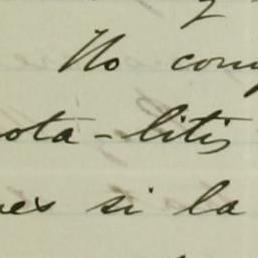 No com
ota-litis
es si la